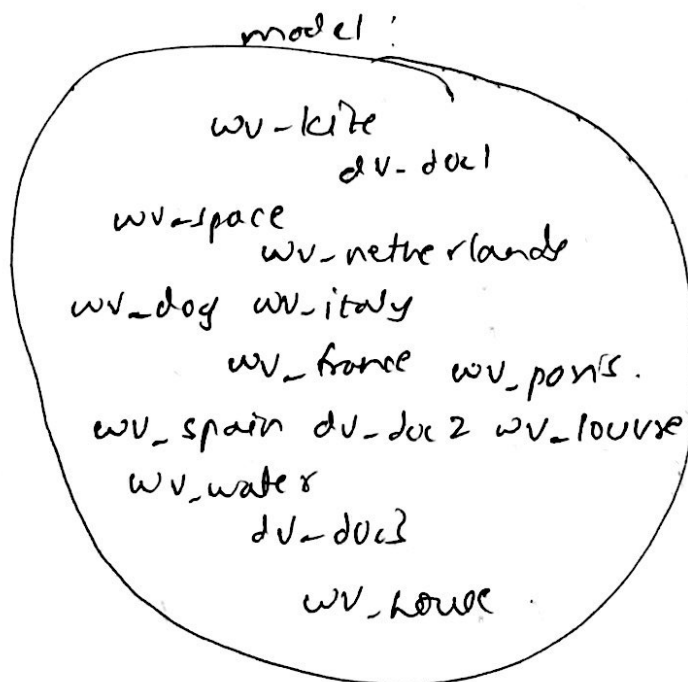 model :
wv-kite
dv-doc1
wv-space
wv-netherlands
wv-dog wv-italy
wv-france wv-paris.
wv-spain dv-doc2 wv-louvre
wv-water
dv-doc3
wv-house .